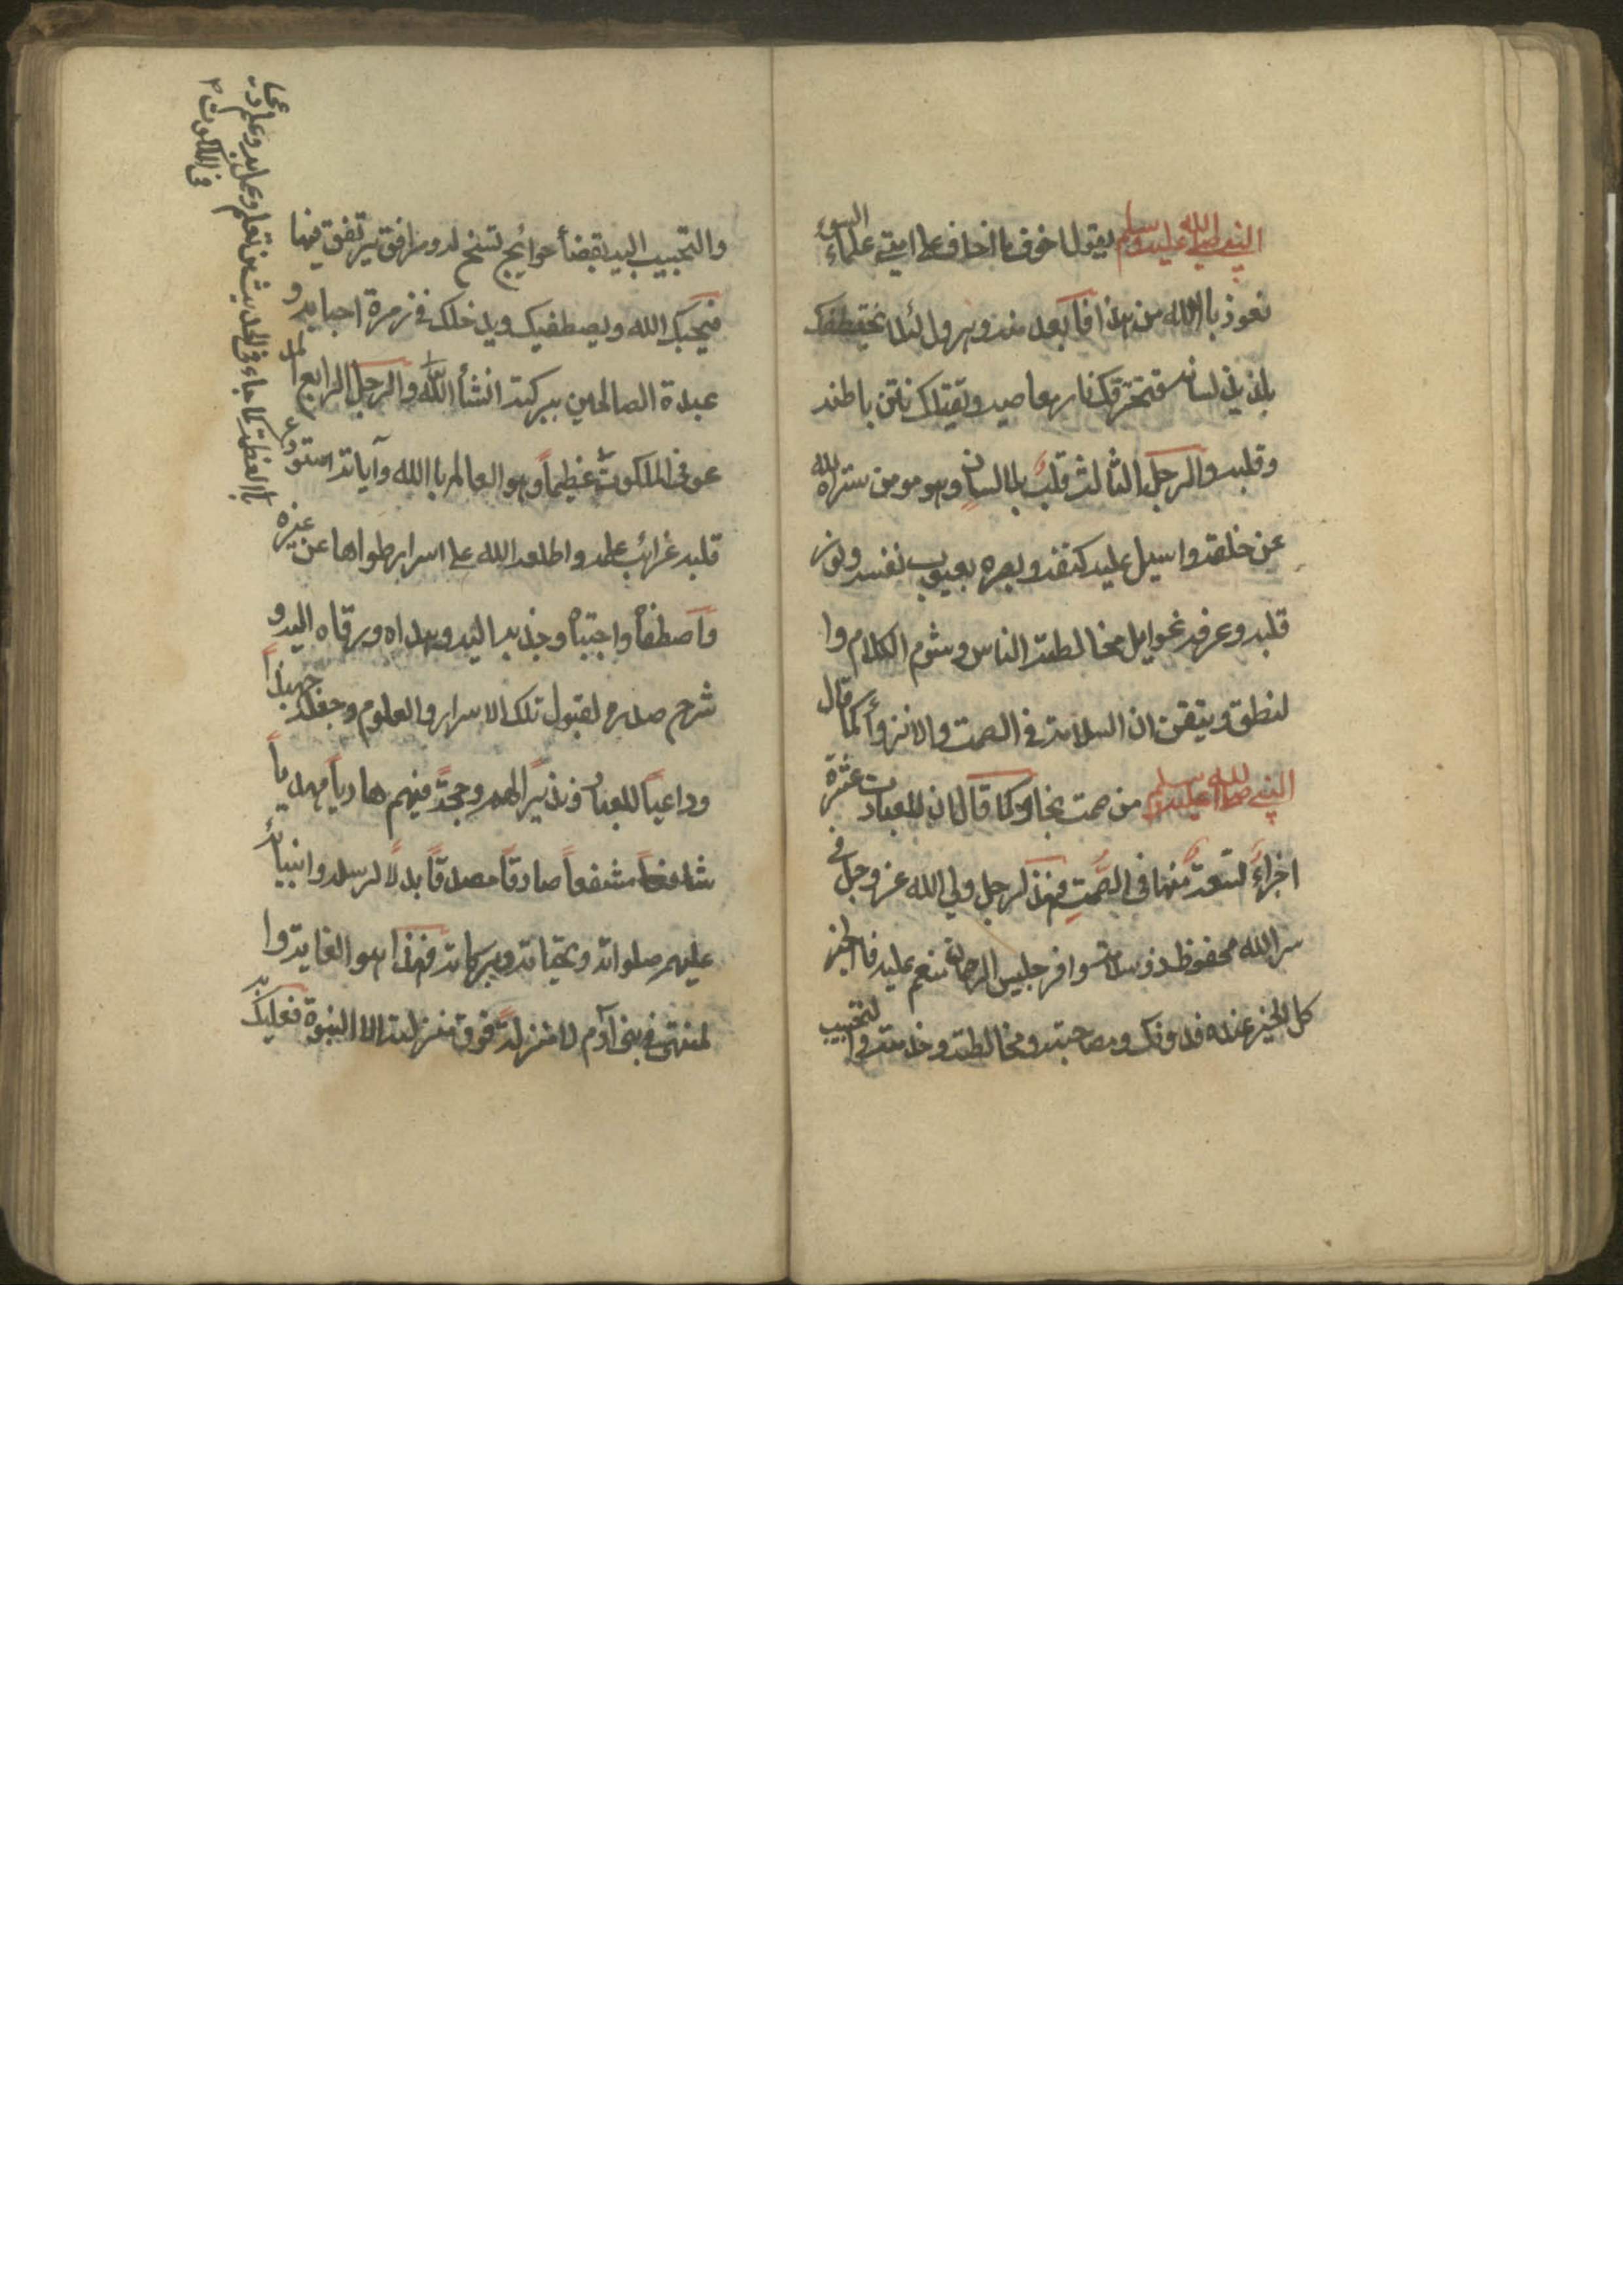 النبي صلى الله عليه وسلم يقول اخوف ما اخاف على امتي علماء السوء
نعوذ باالله من هذا فابعد منه وهرول لئلا يختطفك
بلذيذ لسانه فتحرقك نار معاصيه ويقتلك نتن باطنه
وقلبه والرجل الثالث قلب بلا لسان وهو مومن ستره الله
عن خلقه واسبل عليه كنفه وبصره بعيوب نفسه ونور
قلبه وعرفه غوايل مخالطة الناس وشوم الكلام وا
لنطق ويتقن ان السلامة في الصمت والانزوأ كما قال
النبي صلى الله عليه وسلم من صمت نجا وكما قال ان للعبادت عشرة
اجزاء تسعة منها في الصمت فهذ الرجل ولي الله عز وجل في
سر الله محفوظ ذو سلامة وافر جليس الرحمان منعم عليه فالخير
كل الخير عنده فدونك ومصاحبته ومخالطته وخدمته والتحبيب
والتحبيب اليه بقضأ حوائج تسنح له ومرافق يرتفق بها
فيحبك الله ويصطفيك ويدخلك في زمرة احبابه و
عبدة الصالحين ببركته انشأ الله والرجل الرابع المد
عو في الملكوت عظيماً وهو العالم باالله وآياته استودع
قلبه غرائب علمه واطلعه الله على اسرار طواها عن غيره
واصطفاه واجتباه وجذبه اليه وهداه ورقاه اليه و
شرح صدره لقبول تلك الاسرار والعلوم وجعله جهبذاً
وداعياً للعباد ونذيراً لهم وحجة فيهم هادياً مهدياً
شافعاً مشفعاً صادقاً مصدقاً بدلاً لرسله وانبيائه
عليهم صلواته وتحياته وبركاته فهذا هو الغاية وا
لمنتهى في بني آدم لا منزلة فوق منزلته الا النبوة فعليك به
باالعظمة كما جاء في الحديث من تعلم وعمل به وعلم دعي عظيما
في الملكوت